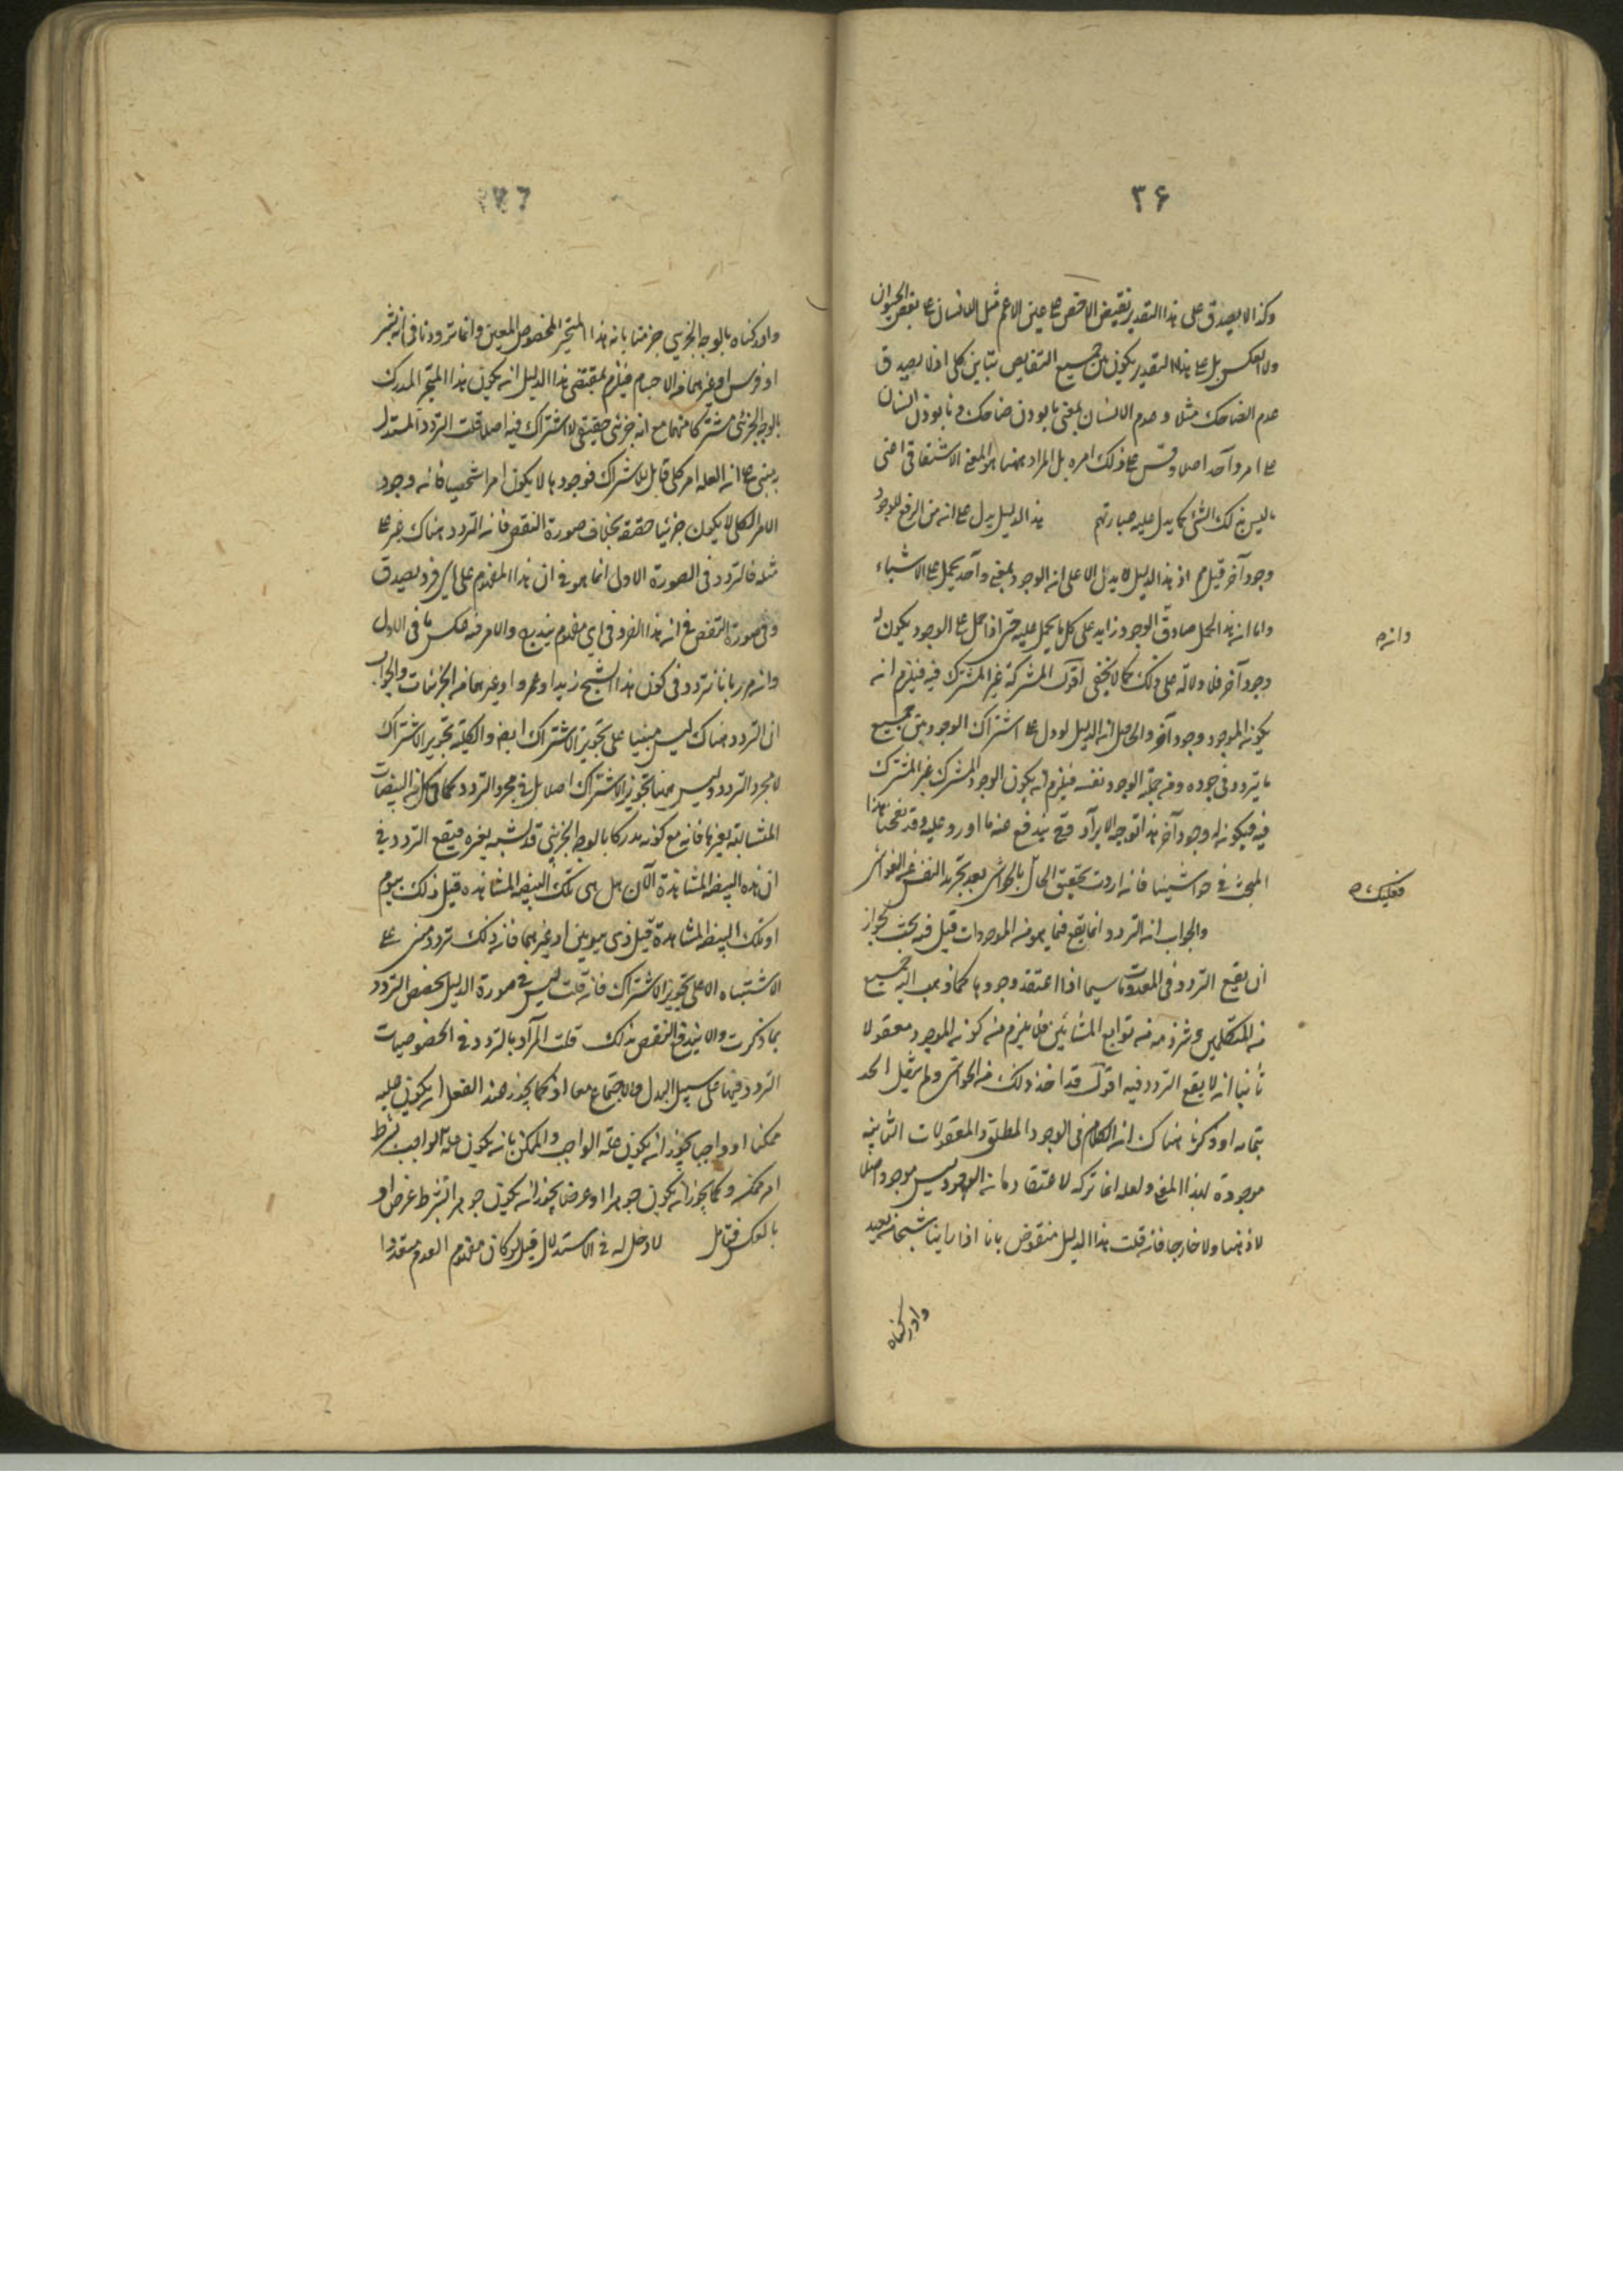 ۳۶
وكذا لا يصدق على هذا التقدير نقيض الاخص على عين الاعم مثل اللانسان على بعض الحيوان
ولا بعكس بل على هذا التقدير يكون بين جميع النقايض تباين كلى اذ لا يصدق
عدم الضاحك مثلا وعدم الانسان بمعنى نابودن ضاحك ونابودن انسان
على امر واحد اصلا وقس على ذلك امره بل المراد ههنا هو المعنى الاشتقاقى اعنى
ما ليس بذلك الشئ كما يدل عليه عبارتهم هذا الدليل يدل على ان للوجود
وجود آخر قيل اذ هذا الدليل لا يدل الا على ان الوجود بمعنى واحد يحمل على الاشياء
واما ان هذا الحمل صادق الوجود زايد على كل ما يحمل عليه حتى اذا حمل على الوجود يكون له
وجود آخر فلا دلالة على ذلك كما لا يخفى اقول المشترك غير المشترك فيه فيلزم ان
يكون للوجود وجود آخر والحاصل ان الدليل لو دل على اشتراك الوجود بين جميع
ما يتردد فى وجوده ومن جملته الوجود نفسه فيلزم ان يكون الوجود المشترك غير المشترك
فيه فيكون له وجود آخر هذا توجيه الايراد وح يندفع عنه ما اورد عليه وقد نقحنا هذا
المبحث فى حواشينا فان اردت تحقيق الحال بالحواشى بعد تجريد النفس عن الغواشى
والجواب ان التردد انما يقع فيما هو من الموجودات قيل فيه بحث لجواز
ان يقع التردد فى المعدومات سيما اذا اعتقد وجودها كما ذهب اليه جميع
من المتكلمين وشرذمة من توابع المشائين فلا يلزم من كونه للوجود معقولا
ثانيا ان لا يقع التردد فيه اقول قد اخذ ذلك من الحواشى ولم ينقل الحد
بتمامه اذ ذكرنا هناك ان الكلام فى الوجود المطلق والمعقولات الثانية
موجودة بهذا المعنى ولعله انما تركه لاعتقاده ان الوجود ليس موجودا اصلا
لا ذهنا ولا خارجا فان قلت هذا الدليل منقوض بانا اذا راينا شبحا من بعيد
وادركناه
وان
فعليك
وادركناه بالوجه الجزئى جزمنا بان هذا المتحيز المخصوص المعين وانما ترددنا فى انه شجر
او فرس او غيرهما من الاجسام فيلزم بمقتضى هذا الدليل ان يكون هذا المتحيز المدرك
بالوجه الجزئى مشتركا منهما مع انه جزئى حقيقى لا اشتراك فيه اصلا قلت التردد المستدل
به مبنى على ان العلة امر كلى قابل للاشتراك فوجودها لا يكون امرا شخصيا فان وجود
الامر الكلى لا يكون جزئيا حقيقة بخلاف صورة النقض فان التردد هناك غير على
مثله فالتردد فى الصورة الاولى انما هو فى ان هذا المفهوم على اى فرد يصدق
وفى صورة النقض فى ان هذا الفرد فى اى مفهوم يندرج والامر فيه عكس ما فى الاول
بانا نتردد فى كون هذا الشبح زيدا وعمروا وغيرهما من الجزئيات والجواب
ان التردد هناك ليس مبنيا على تجويز الاشتراك ايضا والكلية تجويز الاشتراك
لا مجرد التردد وليس ههنا تجويز الاشتراك اصلا بل مجرد التردد كما فى البيضات
المتشابهة بعينها فانه مع كونه مدركا بالوجه الجزئى قد اشتبه بغيره فيقع التردد فى
ان هذه البيضة المشاهدة الآن هل هى تلك البيضة المشاهدة قبل ذلك بيوم
او تلك البيضة المشاهدة قبل ذى بيومين او غيرهما فان ذلك تردد مبنى على
الاشتباه لا على تجويز الاشتراك فان قلت ليس فى صورة الدليل بعض التردد
بما ذكرت والا يندفع النقض بذلك قلت المراد بالتردد فى الخصوصيات
التردد فيها على سبيل البدل والاجتماع معا اذ كما يجوز عند العقل ان يكون علته
ممكنا او واجبا يجوز ان يكون علته الواجب والممكن بان يكون علة الواجب بشرط
امر ممكن وكما يجوز ان يكون جوهرا او عرضا يجوز ان يكون جوهرا بشرط عرض او
بالعكس فتامل لا دخل له فى الاستدلال قيل لو كان مفهوم العدم متعددا